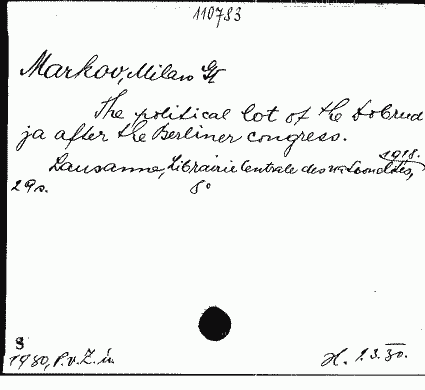 110783
Markov, Milan G.
The political lot of the Dobrud
ja after the Berliner congress.
1918.
Lausanne, Librairie Centrale des nationalités,
29 s. 8°
S
1980, P.v.Z. in.
H. 23.30.